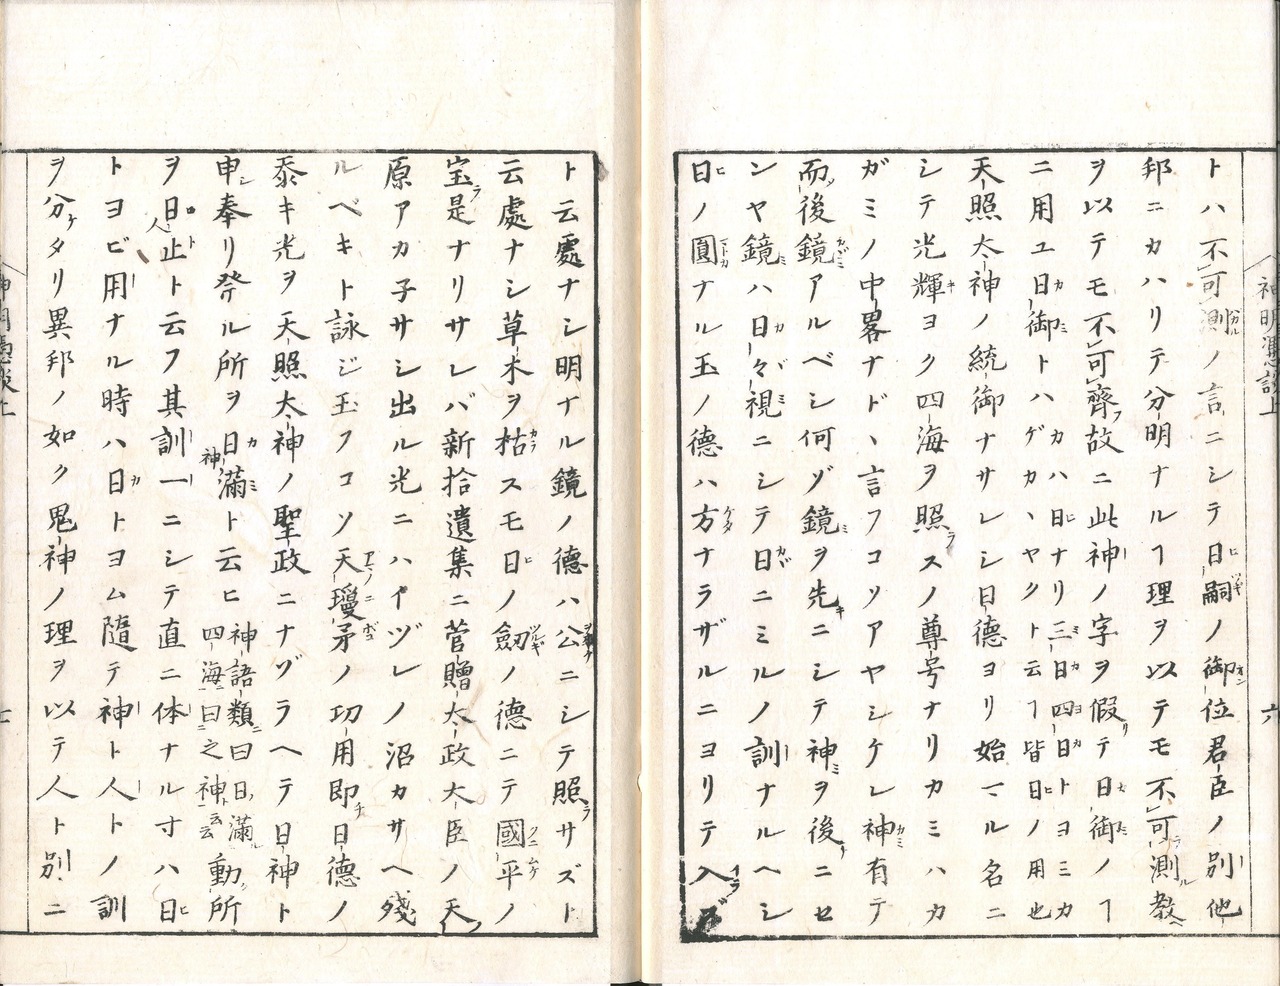 神明憑談上
六
トハ不可測ノ言ニシテ日嗣ノ御位君臣ノ別他
邦ニカハリテ分明ナルヿ理ヲ以テモ不可測教
ヲ以テモ不可齊故ニ此神ノ字ヲ假テ日御ノヿ
ニ用ユ日御トハ
カハ日ナリ三日四日トヨミカ
ゲカヽヤクト云ヿ皆日ノ用也
天照太神ノ統御ナサレシ日德ヨリ始マル名ニ
シテ光輝ヨク四海ヲ照スノ尊号ナリカミハカ
ガミノ中畧ナドヽ言フコソアヤシケレ神有テ
而後鏡アルベシ何ゾ鏡ヲ先ニシテ神ヲ後ニセ
ンヤ鏡ハ日々視ニシテ日ニミルノ訓ナルヘシ
日ノ圓ナル玉ノ德ハ方ナラザルニヨリテ入ズ
ト云處ナシ明ナル鏡ノ德ハ公ニシテ照サズト
云處ナシ草木ヲ枯スモ日ノ劔ノ德ニテ國平ノ
宝是ナリサレバ新拾遺集ニ菅贈太政大臣ノ天
原アカ子サシ出ル光ニハイヅレノ沼カサヘ殘
ルベキト詠ジ玉フコソ天瓊矛ノ功用即日德ノ
忝キ光ヲ天照太神ノ聖政ニナゾラヘテ日神ト
申奉リ祭ル所ヲ日滿ト云ヒ
神語類曰日滿
四海曰之神云云
動所
ヲ日止ト云フ其訓一ニシテ直ニ体ナル寸ハ日
トヨビ用ナル時ハ日トヨム隨テ神ト人トノ訓
ヲ分タリ異邦ノ如ク鬼神ノ理ヲ以テ人ト別ニ
七